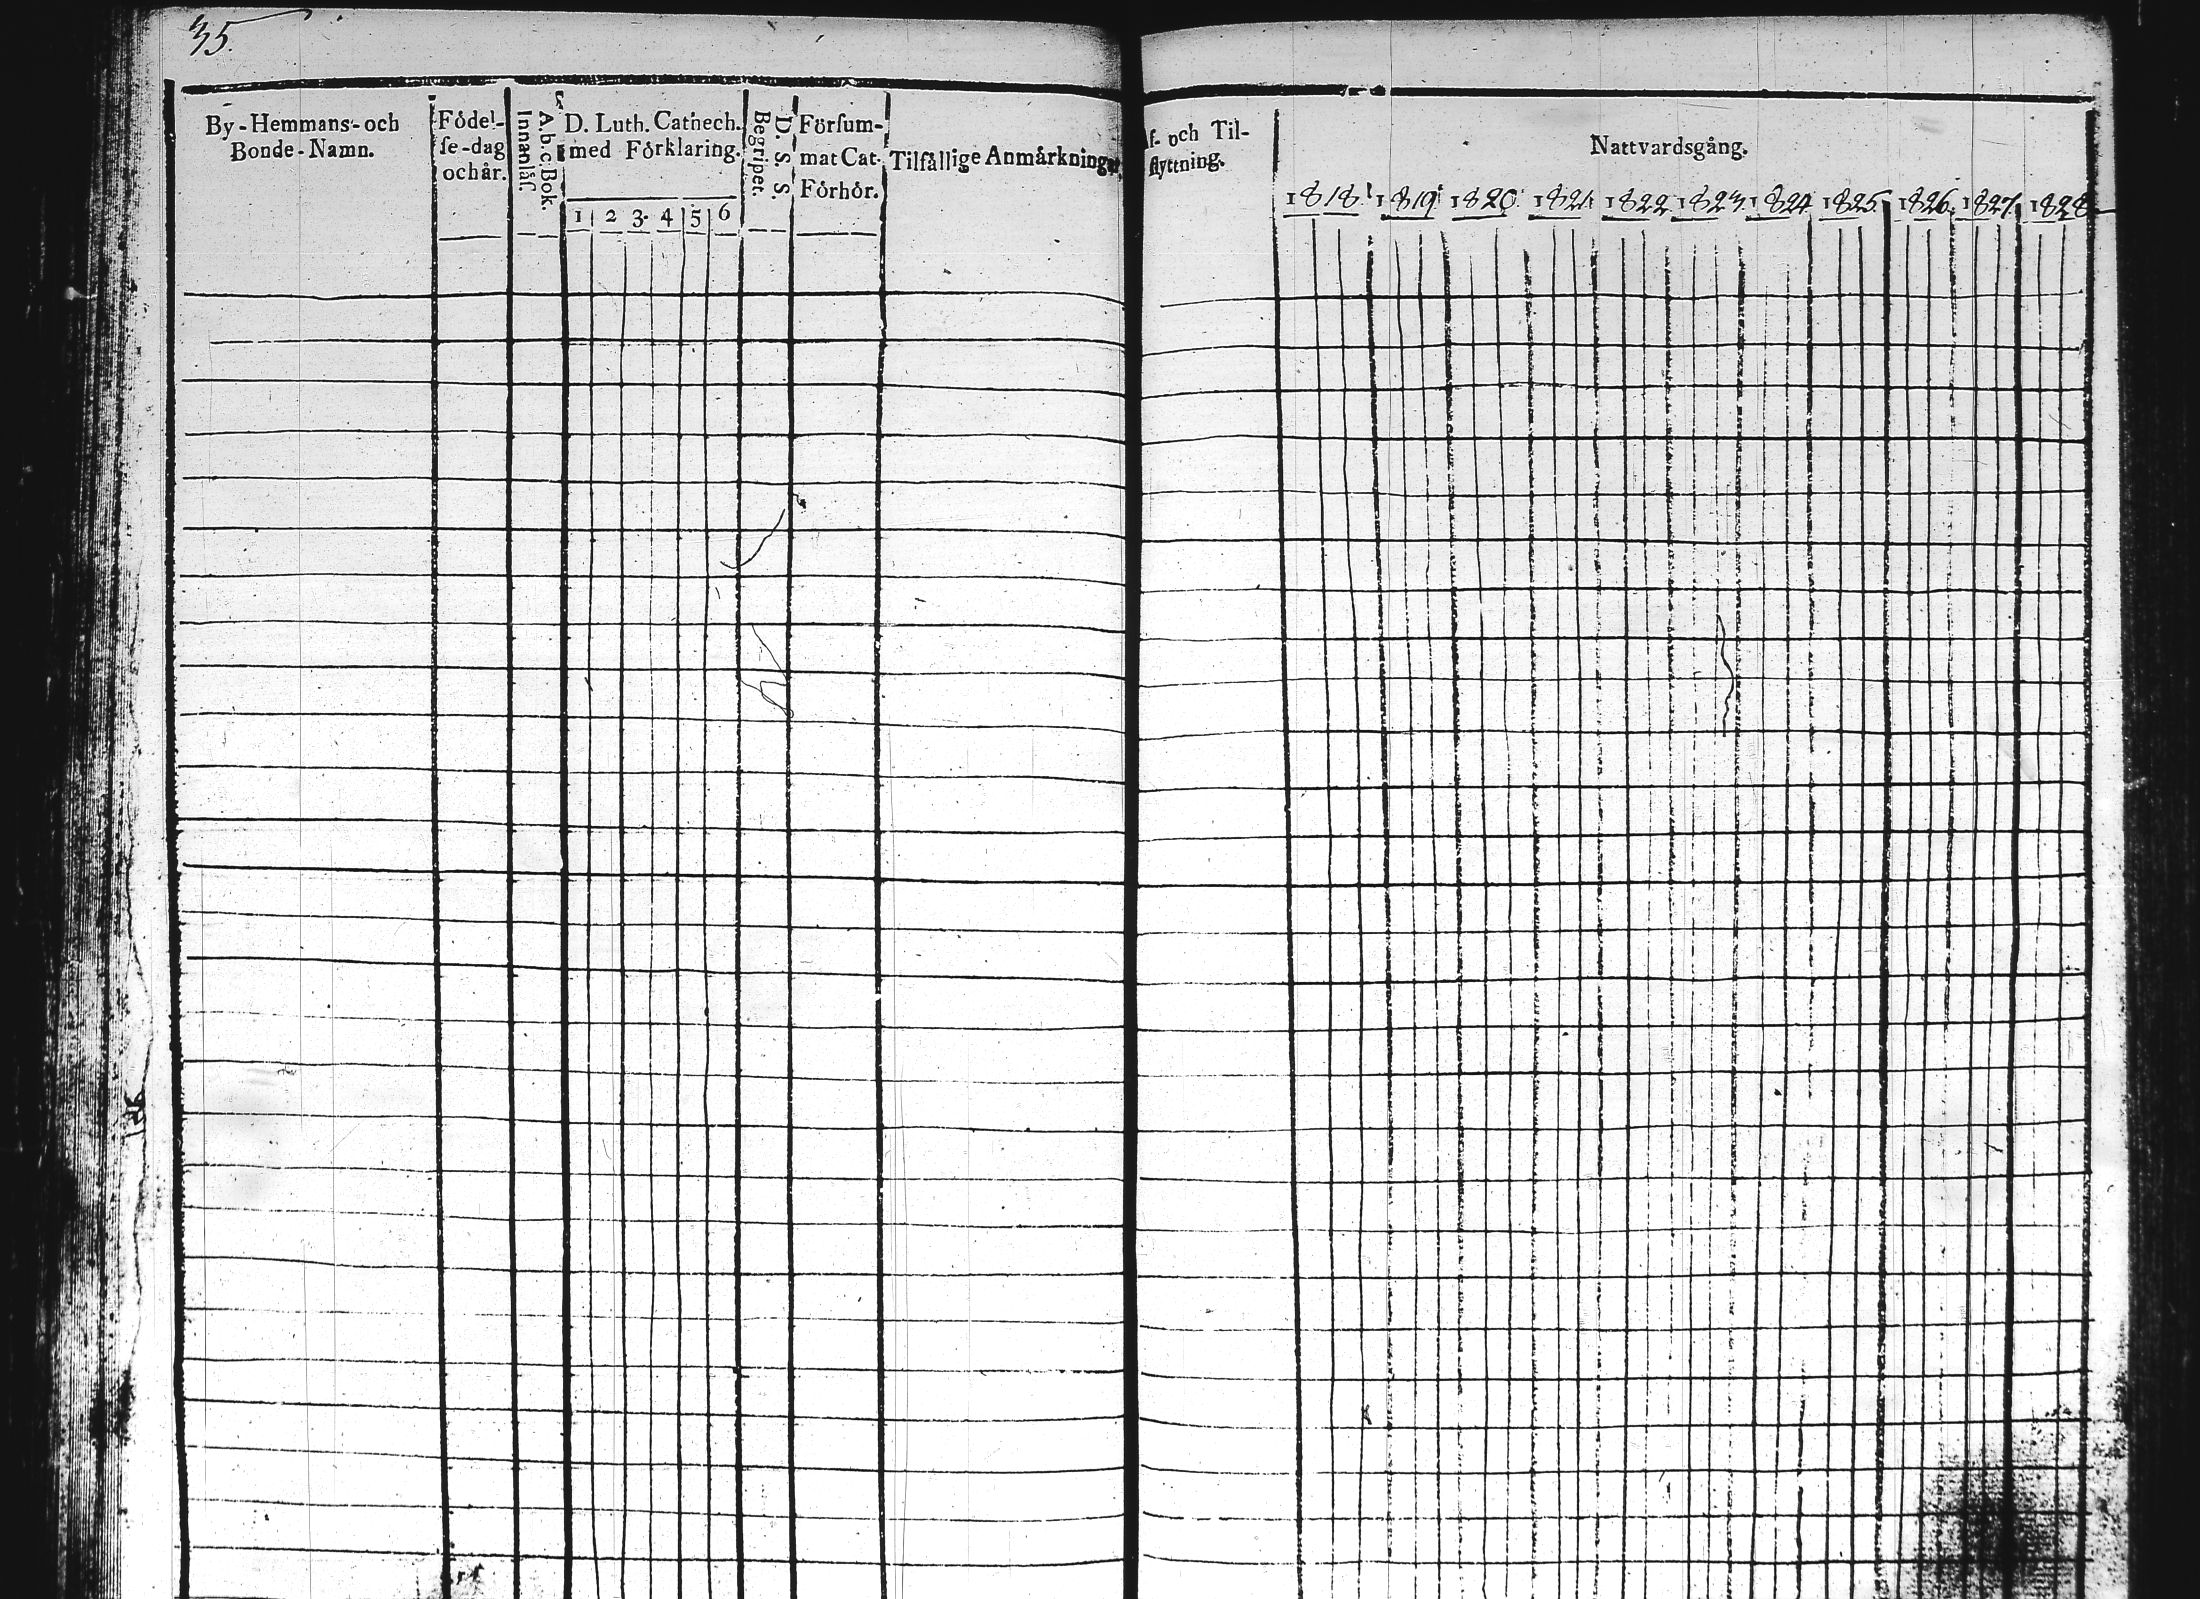 35.
By-Hemmans-och
Bonde-Namn.
Födel-
ſe-dag
och år.
A. b. c. Bok.
Innanläſ.
D. Luth. Cathech.
med Förklaring.
1 2 3. 4 5 6
D. S. S.
Begripet.
Förſum-
mat Cat.
Förhör.
Tilfällige Anmärkningar
f- och Til-
flyttning.
Nattvardsgång.
1818. 1819. 1820. 1821. 1822. 1823. 1824. 1825. 1826. 1827. 1828